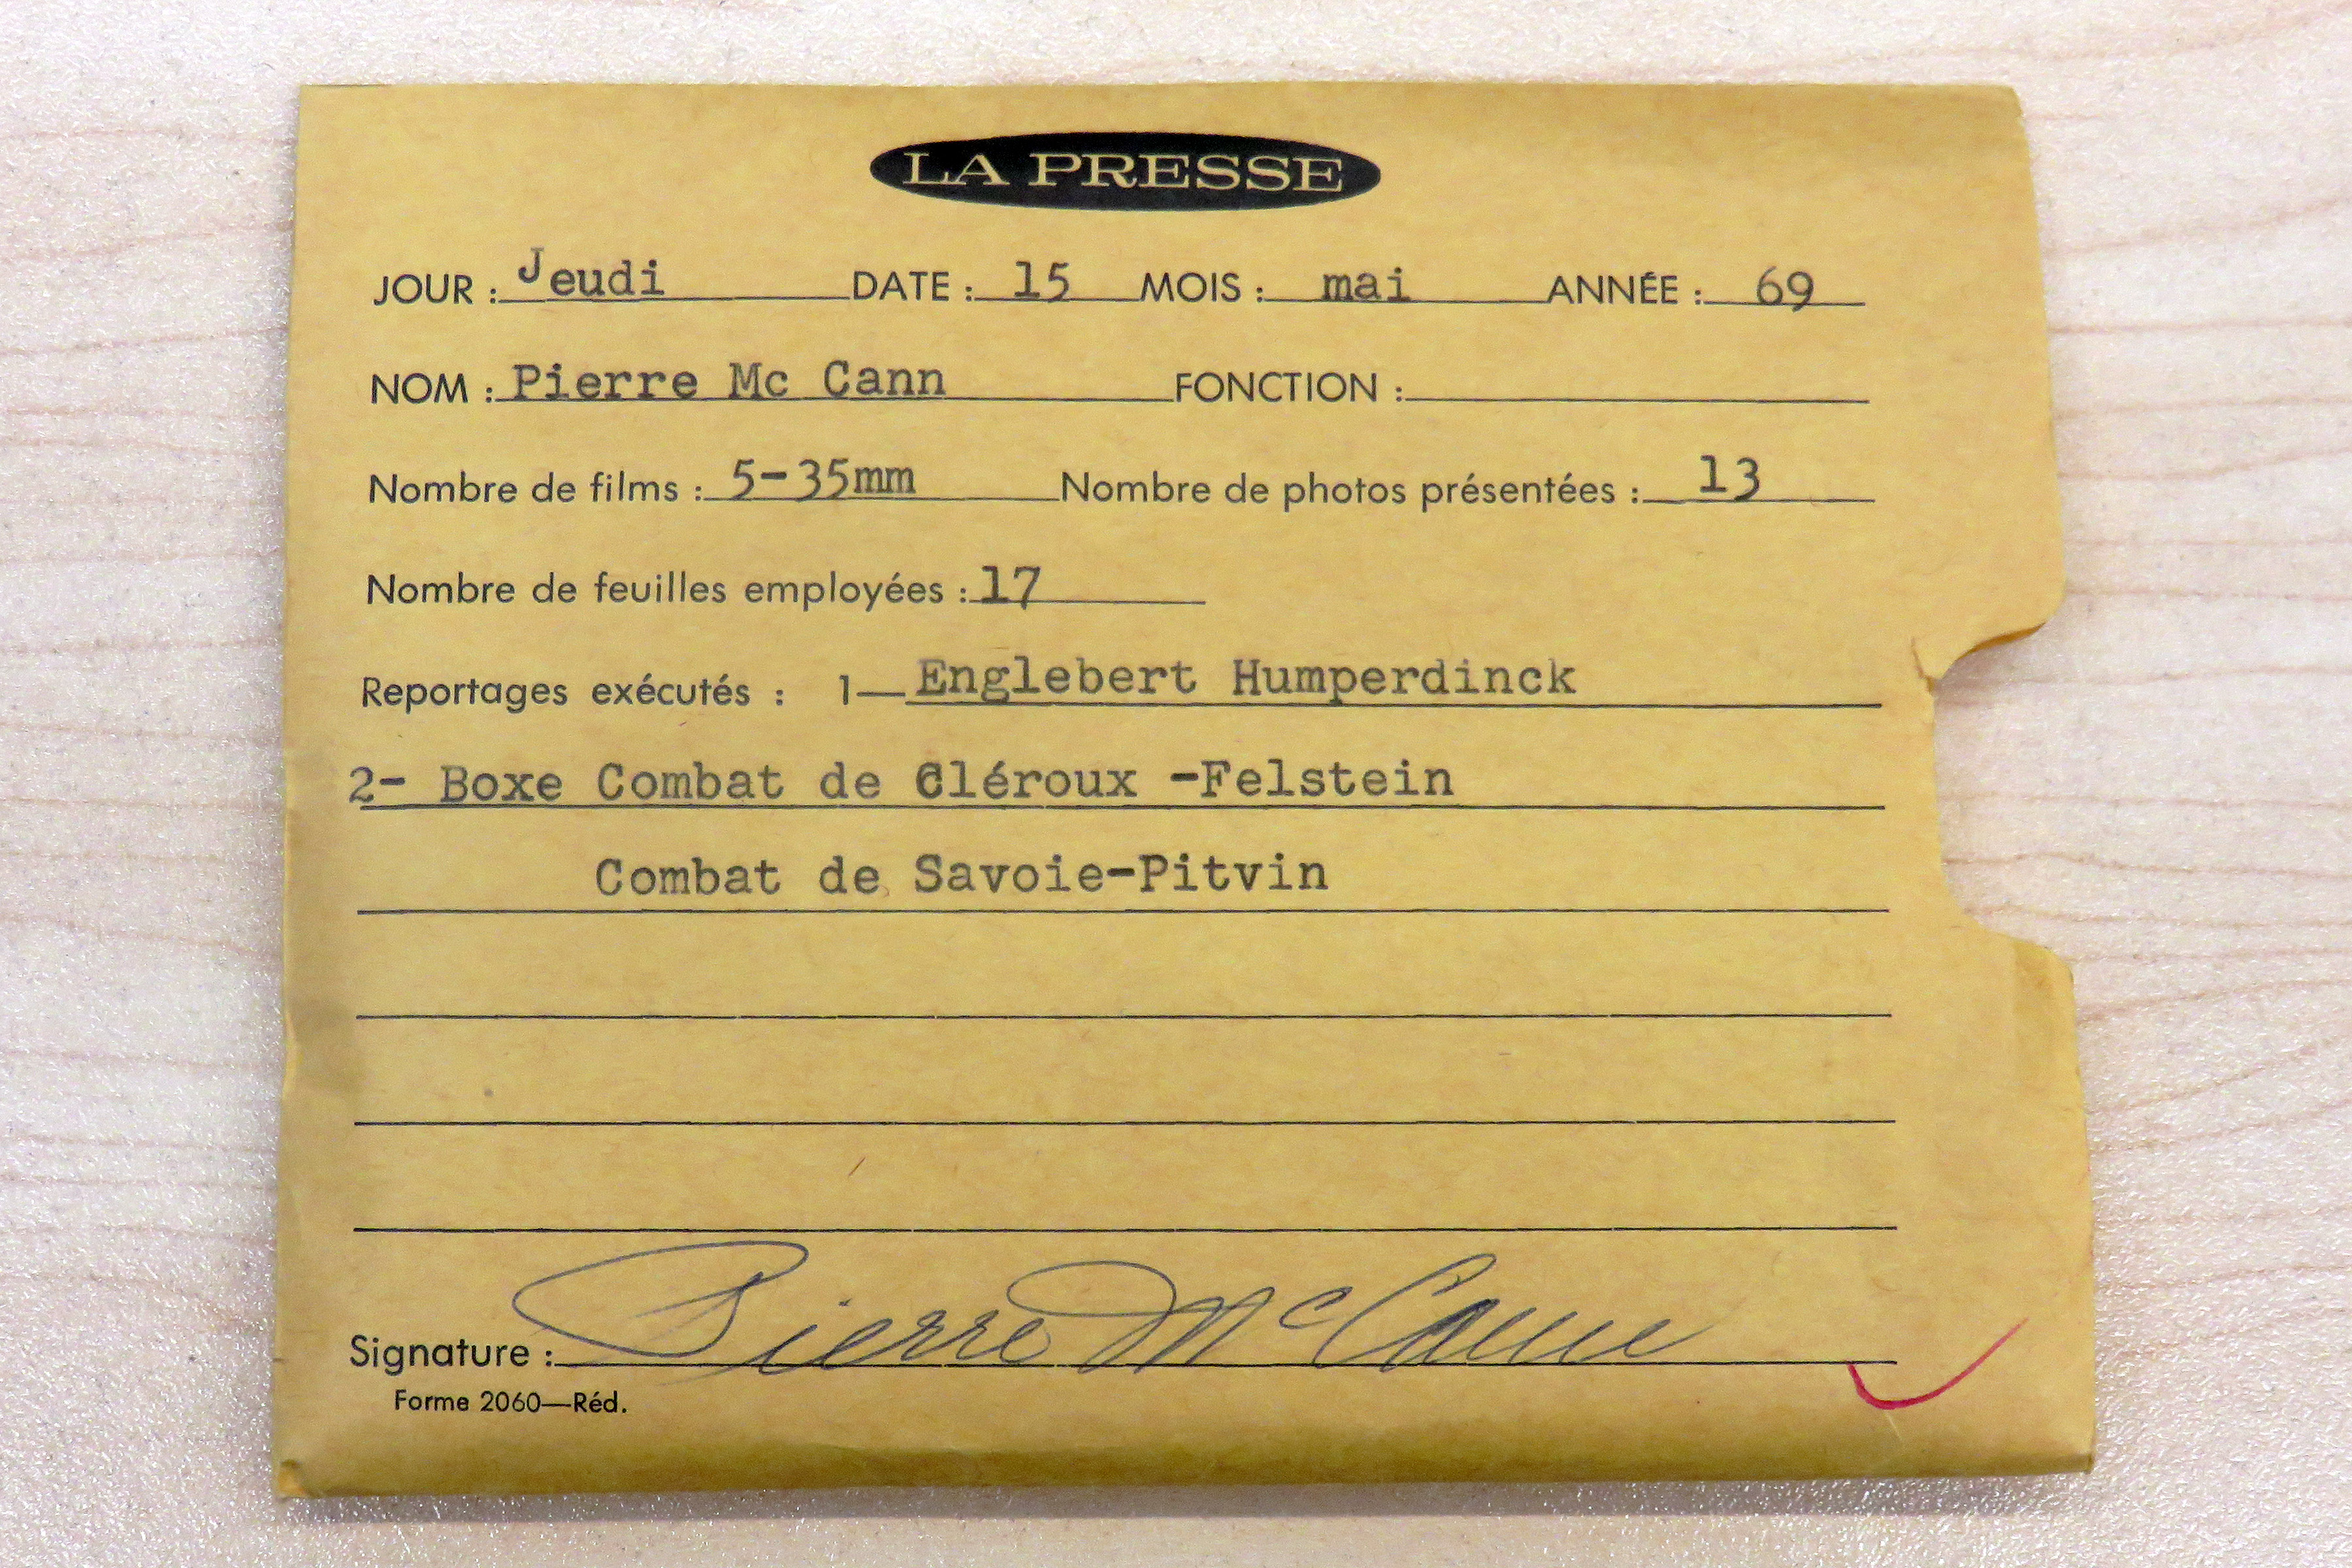 LA PRESSE
JOUR : Jeudi DATE : 15 MOIS : mai ANNÉE : 69
NOM : Pierre Mc Cann FONCTION :
Nombre de films : 5-35mm Nombre de photos présentées : 13
Nombre de feuilles employées : 17
Reportages exécutés : 1— Englebert Humperdinck
2- Boxe Combat de Cléroux -Felstein
Combat de Savoie-Pitvin
Signature : Pierre McCann
Forme 2060—Réd.